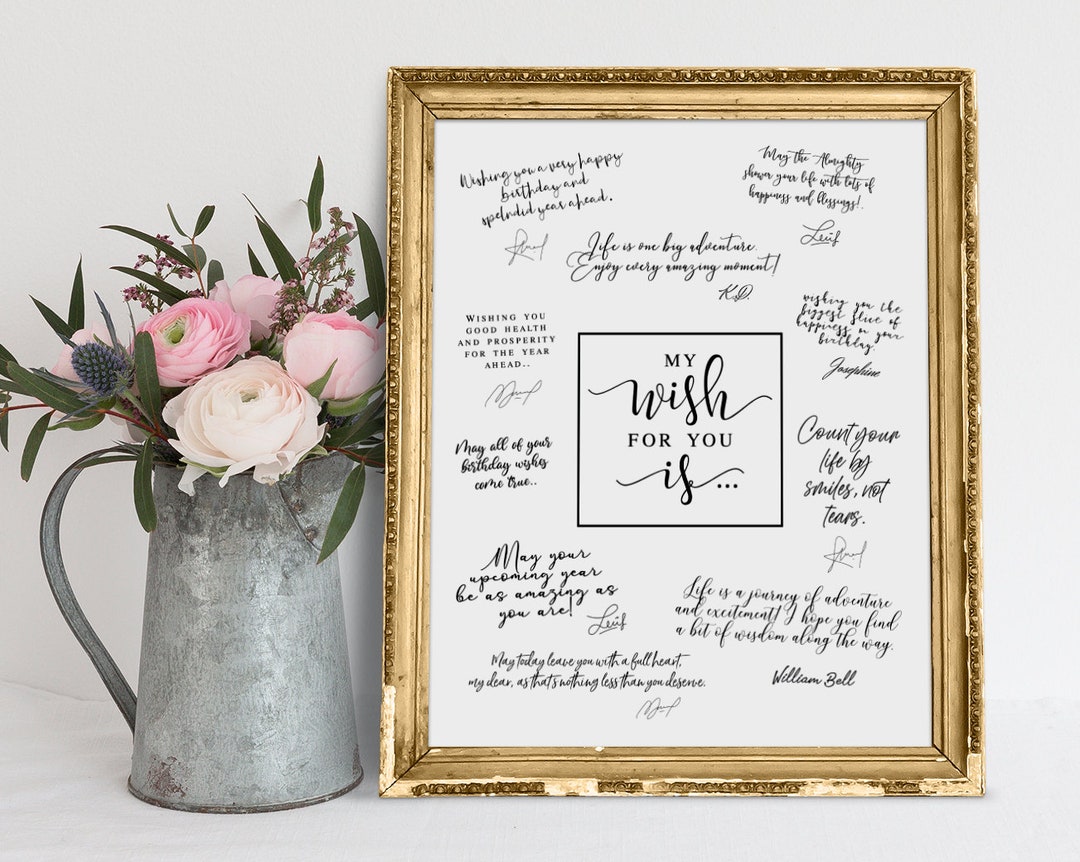 Wishing you a very happy
birthday and
spelndid year ahead.
May the Almighty
shower your life with lots of
happiness and blessings!.
Life is one big adventure.
Enjoy every amazing moment!
K.D.
WISHING YOU
GOOD HEALTH
AND PROSPERITY
FOR THE YEAR
AHEAD..
wishing you the
biggest slice of
happiness on your
birthday.
Josephine
MY
wish
FOR YOU
is...
May all of your
birthday wishes
come true..
Count your
life by
smiles, not
tears.
May your
upcoming year
be as amazing as
you are!
Life is a journey of adventure
and excitement! I hope you find
a bit of wisdom along the way.
William Bell
May today leave you with a full heart,
my dear, as that's nothing less than you deserve.